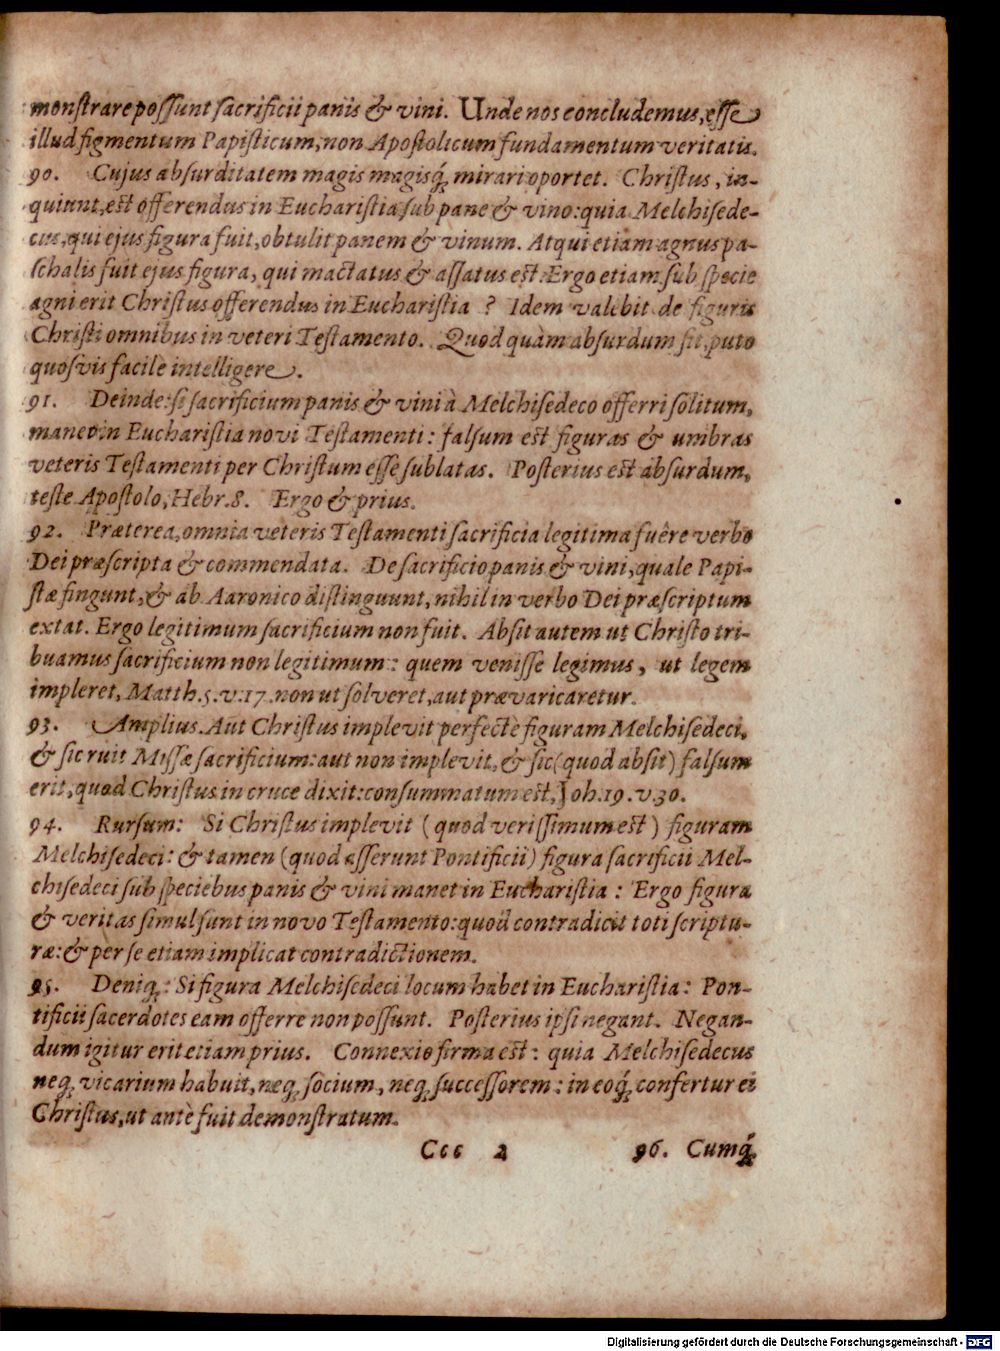 monstrare possunt sacrificii panis & vini. Unde nos concludemus, esse
illud figmentum Papisticum, non Apostolicum fundamentum veritatis.
90. Cujus absurditatem magis magisq́; mirari oportet. Christus, in-
quiunt, est offerendus in Eucharistia sub pane & vino: quia Melchisede-
cus, qui ejus figura fuit, obtulit panem & vinum. Atqui etiam agnus pa-
schalis fuit ejus figura, qui mactatus & assatus est. Ergo etiam sub specie
agni erit Christus offerendus in Eucharistia? Idem valebit de figuris
Christi omnibus in veteri Testamento. Quod quàm absurdum sit, puto
quosvis facilè intelligere.
91. Deinde: si sacrificium panis & vini à Melchisedeco offerri solitum,
manet in Eucharistia novi Testamenti: falsum est figuras & umbras
veteris Testamenti per Christum esse sublatas. Posterius est absurdum,
teste Apostolo, Hebr. 8. Ergo & prius.
92. Præterea, omnia veteris Testamenti sacrificia legitima fuêre verbo
Dei præscripta & commendata. De sacrificio panis & vini, quale Papi-
stæ fingunt, & ab Aaronico distinguunt, nihil in verbo Dei præscriptum
extat. Ergo legitimum sacrificium non fuit. Absit autem ut Christo tri-
buamus sacrificium non legitimum: quem venisse legimus, ut legem
impleret, Matth. 5. v. 17. non ut solveret, aut prævaricaretur.
93. Amplius. Aut Christus implevit perfectè figuram Melchisedeci,
& sic ruit Missæ sacrificium: aut non implevit, & sic (quod absit) falsum
erit, quod Christus in cruce dixit: consummatum est, Joh. 19. v. 30.
94. Rursum: Si Christus implevit (quod verissimum est) figuram
Melchisedeci: & tamen (quod asserunt Pontificii) figura sacrificii Mel-
chisedeci sub speciebus panis & vini manet in Eucharistia: Ergo figura
& veritas simul sunt in novo Testamento: quod contradicit toti scriptu-
ræ: & per se etiam implicat contradictionem.
95. Deniq;: Si figura Melchisedeci locum habet in Eucharistia: Pon-
tificii sacerdotes eam offerre non possunt. Posterius ipsi negant. Negan-
dum igitur erit etiam prius. Connexio firma est: quia Melchisedecus
neq; vicarium habuit, neq; socium, neq; successorem: in eoq́; confertur ei
Christus, ut antè fuit demonstratum.
Ccc 2 96. Cumq́;
Digitalisierung gefördert durch die Deutsche Forschungsgemeinschaft - DFG